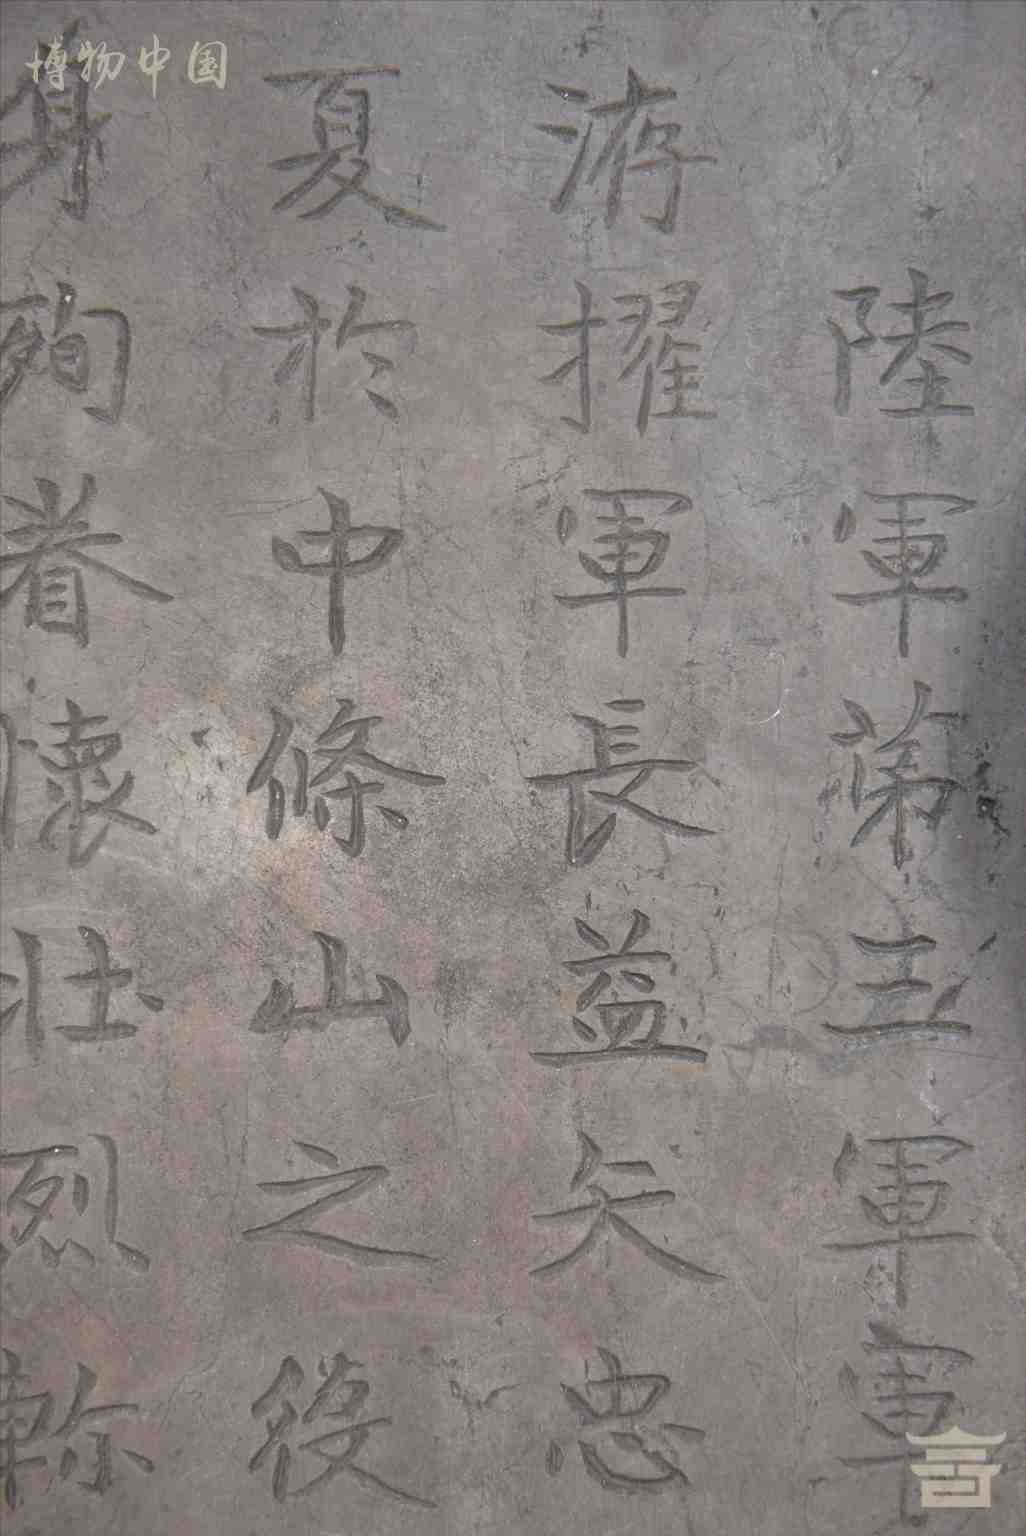 博物中国
陸軍第三軍軍
洊擢軍長益矢忠
夏於中條山之役
身殉眷懷壯烈軫